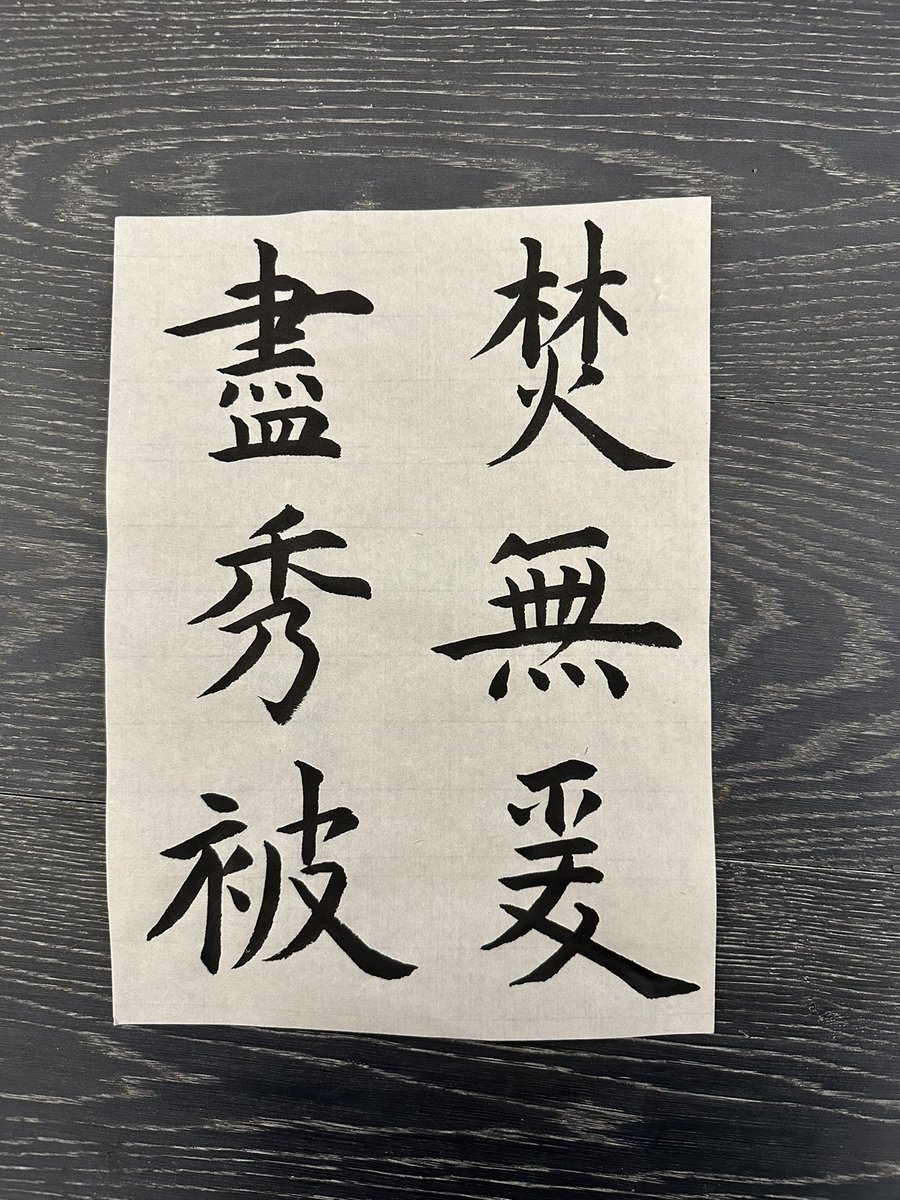 焚無爰
盡秀被